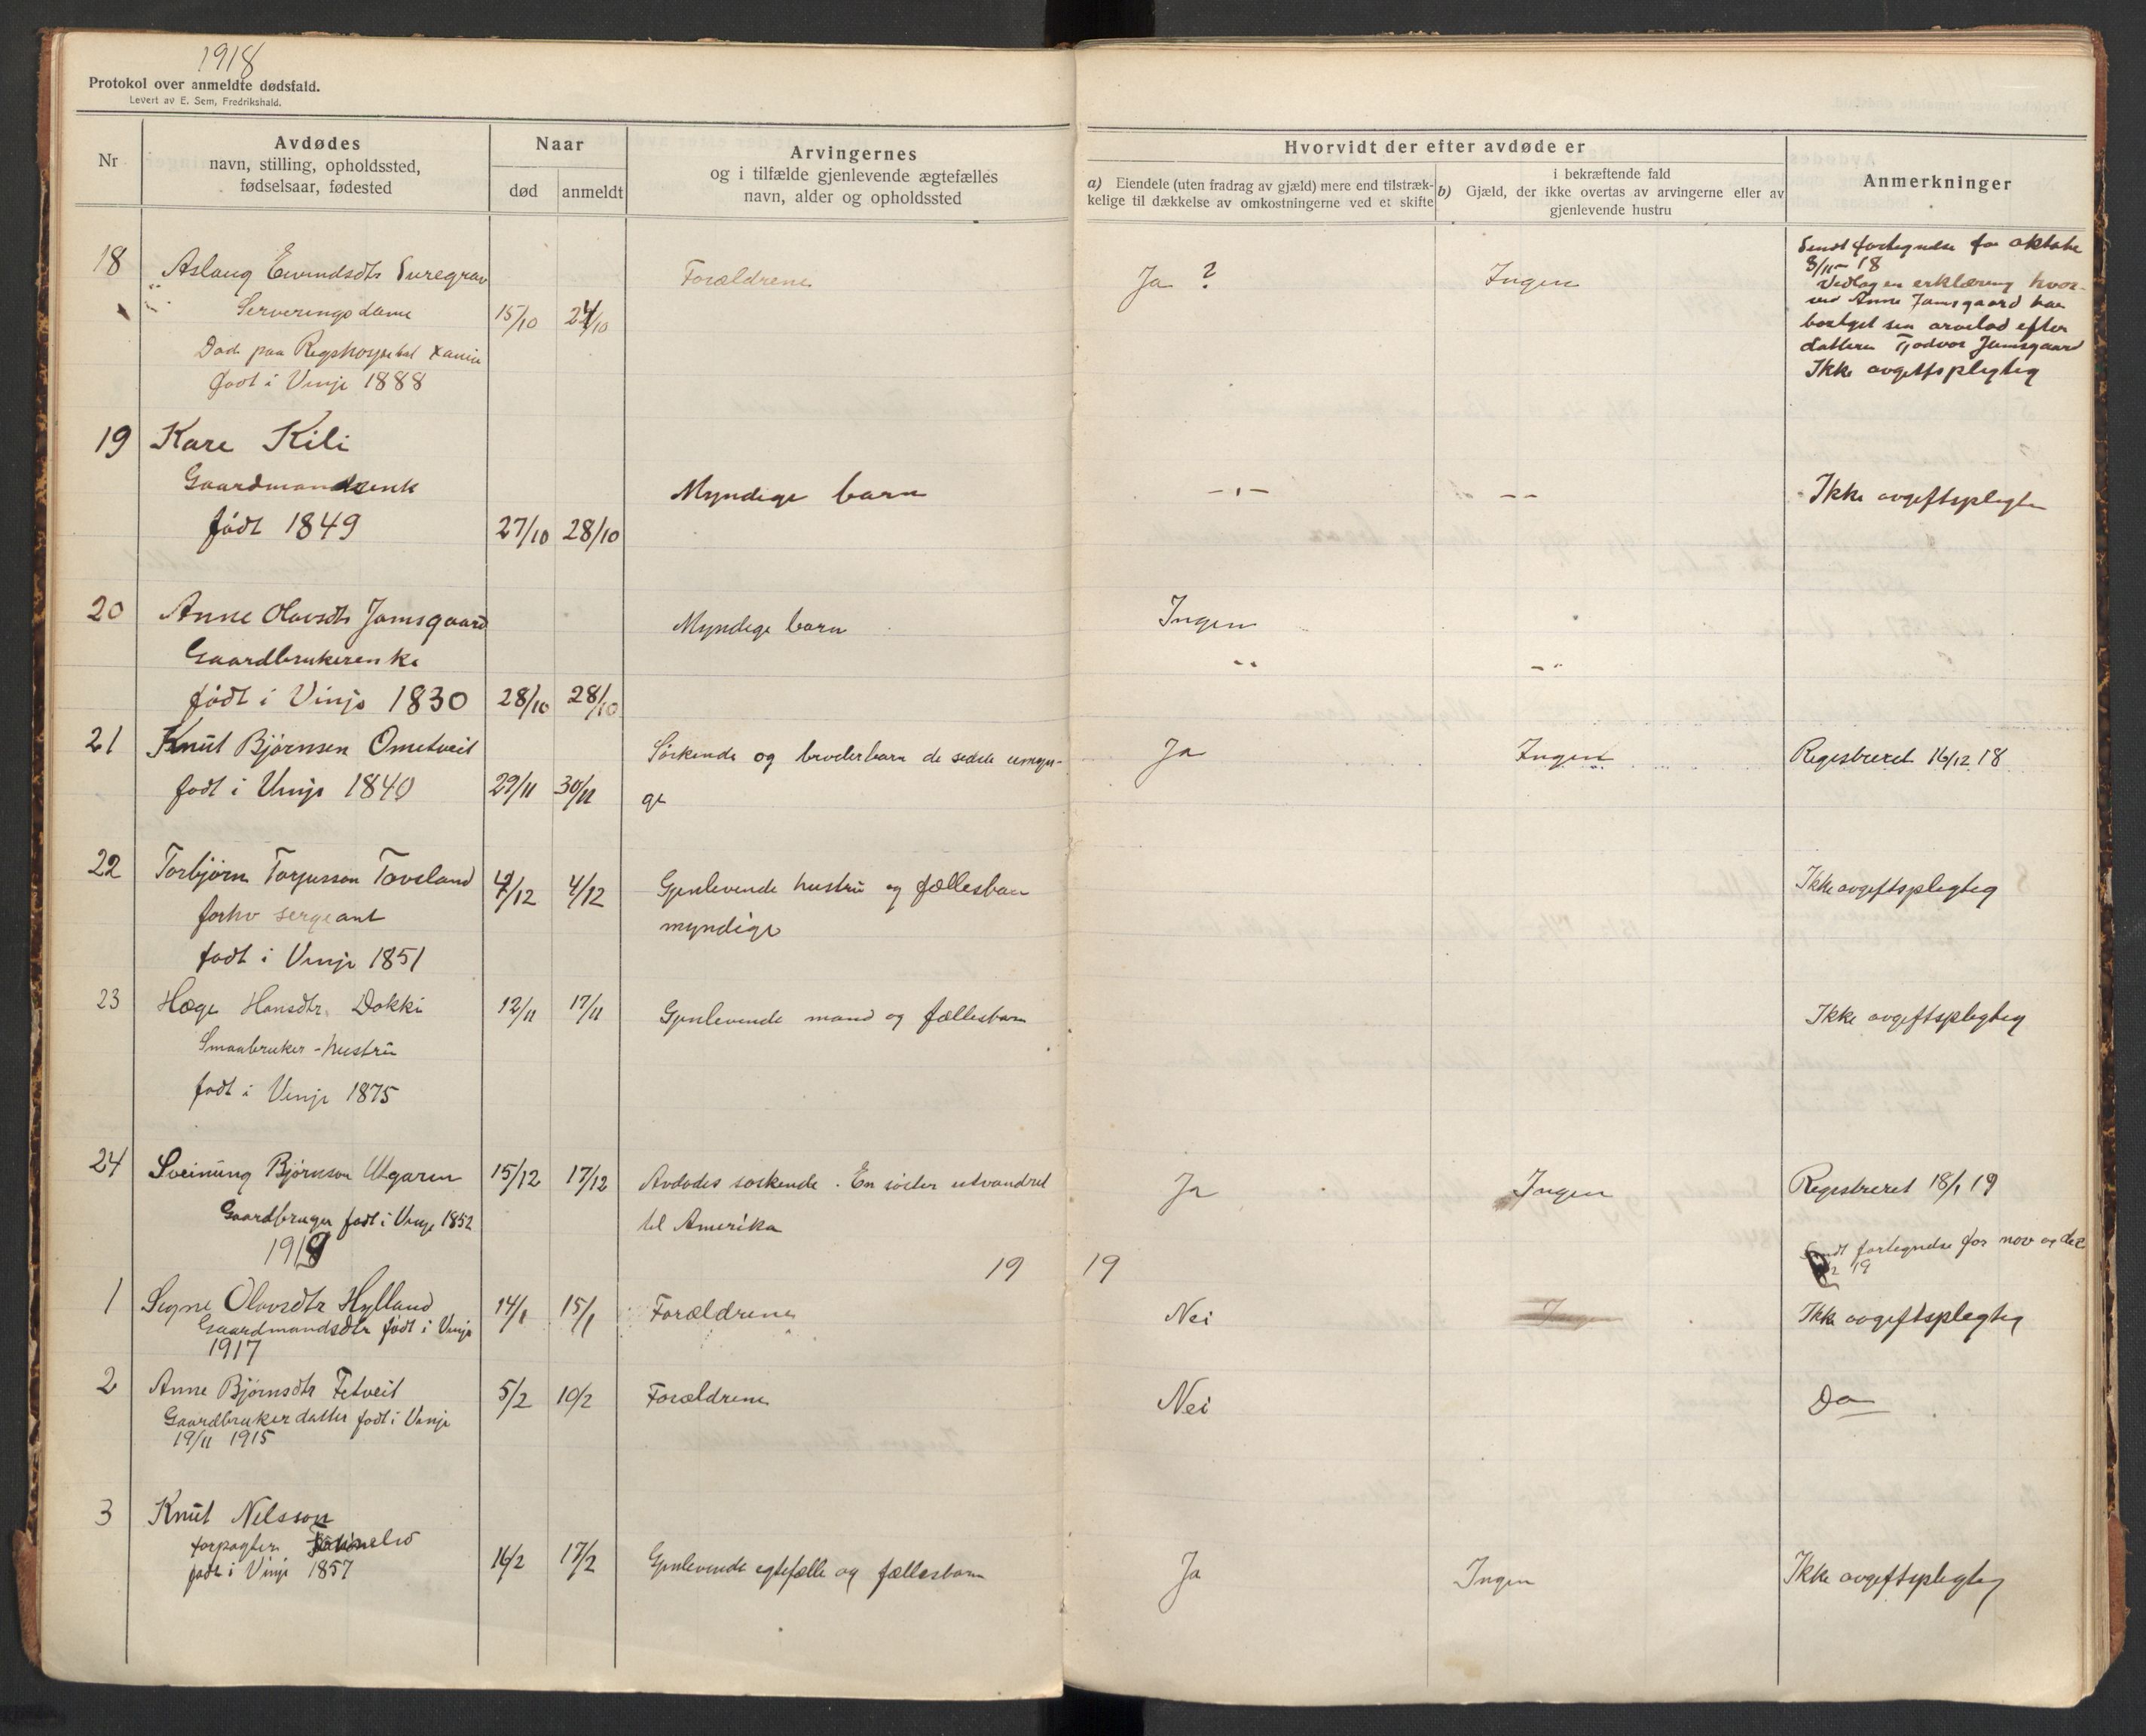 1918
Protokol over anmeldte dødsfald.
Levert av E. Sem, Fredrikshald.
Nr
Avdødes
navn, stilling, opholdssted,
fødselsaar, fødested
Naar
død
anmeldt
Arvingernes
og i tilfælde gjenlevende ægtefælles
navn, alder og opholdssted
Hvorvidt der efter avdøde er
a) Eiendele (uten fradrag av gjæld) mere end tilstræk-
kelige til dækkelse av omkostningerne ved et skifte
i bekræftende fald
b) Gjæld, der ikke overtas av arvingerne eller av
gjenlevende hustru
Anmerkninger
Sendt fortegnelse for oktobe
8/11 - 18
Vedlag en erklæring hvor-
ved Anne Jamsgaard har
sin arvelod efter
datteren Tjodvor Jamsgaard
Ikke avgeftsplegteg
18 Aslaug Eivindsdtr Suregrav
Forældrene Ja ? Ingen
Serveringsdame 15/10 24/10
Død paa
født i Vinje 1888
19 Kare Kili
Gaardmandsenk Myndige barn -"- -- Ikke avgeftsplegte
født 1849 27/10 28/10
20 Anne Olavsdtr Jamsgaard Myndige barn Ingen
Gaardbrukerenke -- -"
født i Vinje 1830 28/10 28/10
21 Knut Bjørnsen Ometveit Søskende og broderbarn de sedste umyn- Ja Ingen Regestreret 16/12 18
født i Vinje 1840 29/11 30/11 ge
22 Torbjørn Torjusson Tovsland 4/12 4/12 Gjenlevende hustru og fællesbarn Ikke avgeftsplegteg
forhv sergeant myndige
født i Vinje 1851
23 Hæge Hansdtr. Dokki 12/11 17/11 Gjenlevende mand og fællesbarn Ikke avgeftsplegteg
Smaabruker - hustru
født i Vinje 1875
24 Sveinung Bjørnson Utgaren 15/12 17/12 Avdødes søskende. En søster utvandret Ja Ingen Regestreret 18/1 19
Gaardbruger født i Vinje 1852 til Amerika
Sendt fortegnelse for nov og dec
1919 19 19
19
1 Signe Olavsdtr Hylland 14/1 15/1 Forældrene Nei Ingen Ikke avgeftsplegteg
Gaardmandsdtr født i Vinje
1917
2 Anne Bjørnsdtr Fetveit 5/2 10/2 Forældrene Nei Do
Gaardbrukerdatter født i Vinje
19/11 1915
3 Knut Nelsson
forpagter
født i Vinje 1857 16/2 17/2 Gjenlevende egtefælle og fællesbarn Ja Ingen Ikke avgeftsplegteg